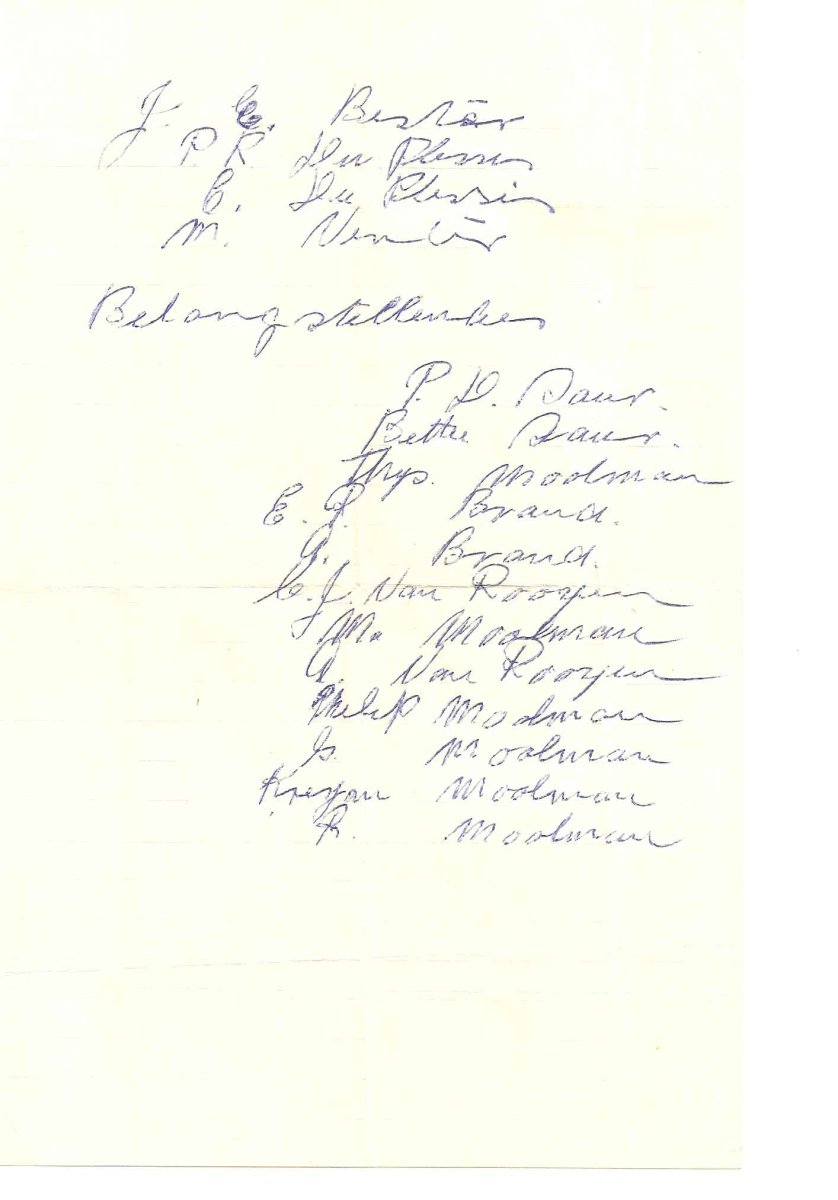 J. C. Bestär
P R Du Plessis
C. Du Plessis
M. Ventër
Belangstellendes
P. D. Saur.
Bettie Saur.
Thys. Moolman
E. P. Brand.
Brand.
C. J. Van Rooyen
Ma Moolman
Van Rooyen
Philip Moolman
G. Moolman
Moolman
R. Moolman